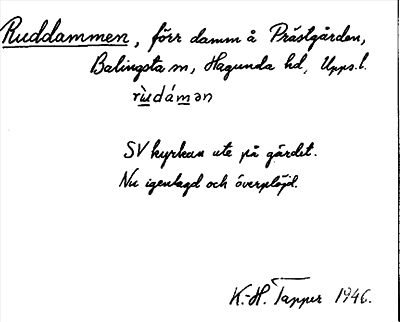 Ruddammen, förr damm å Prästgården,
Balingsta sn, Hagunda hd, Upps. l.
rùdámən
SV kyrkan ute på gärdet.
Nu igenlagd och överplöjd.
K.-H. Tapper 1946.